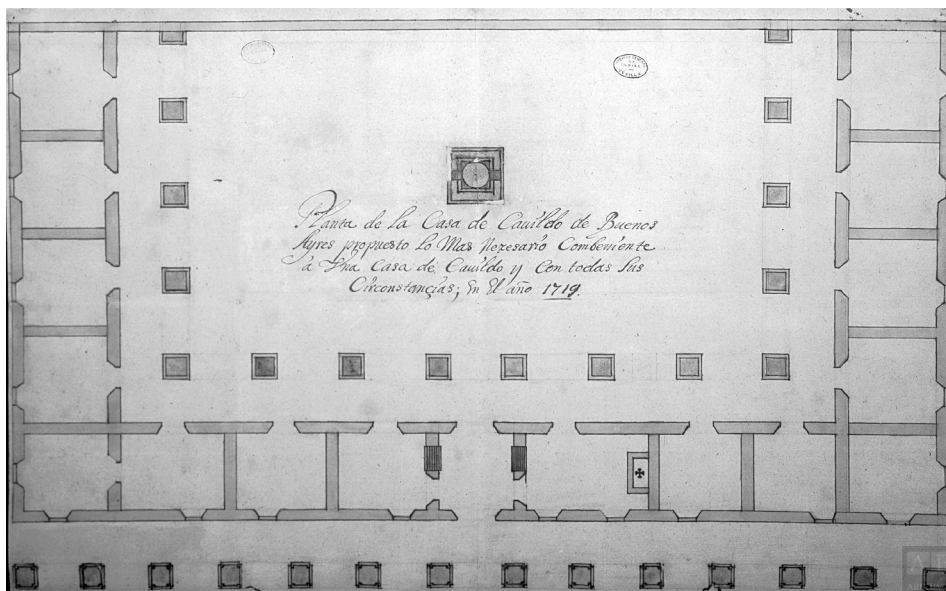 Planta de la Casa de Cavildo de Buenos
Ayres propuesto lo Mas Nezesario Combeniente
à Vna Casa de Cavildo y Con todas sus
Circonstançias; En El año 1719.